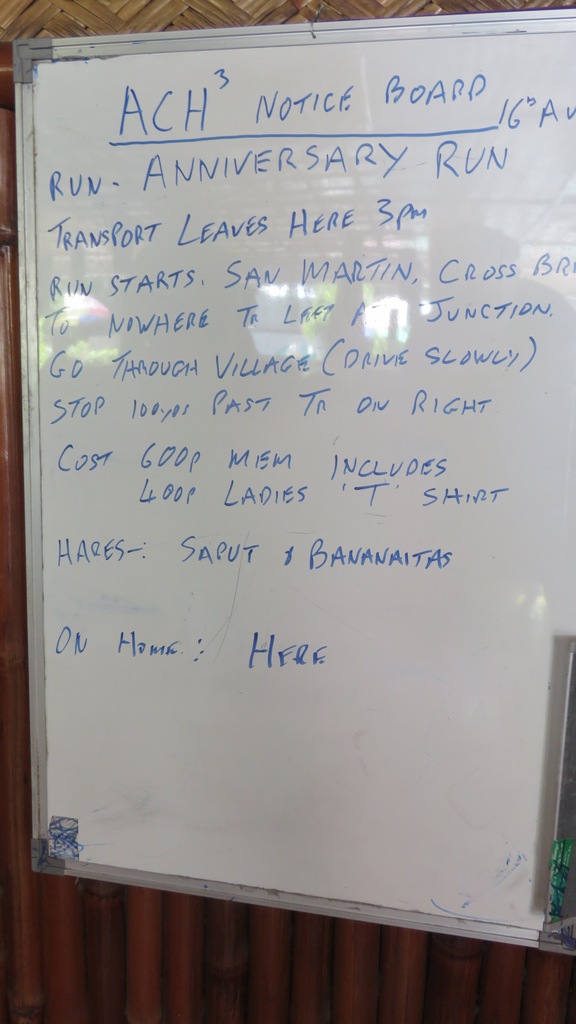 ACH³ NOTICE BOARD
16th AU
RUN - ANNIVERSARY RUN
TRANSPORT LEAVES HERE 3pm
RUN STARTS. SAN MARTIN, CROSS BRI
TO NOWHERE TR LEFT AT JUNCTION.
GO THROUGH VILLAGE (DRIVE SLOWLY)
STOP 100yds PAST TR ON RIGHT
COST 600p MEM INCLUDES
400p LADIES 'T' SHIRT
HARES-: SAPUT & BANANAITAS
ON HOME: HERE